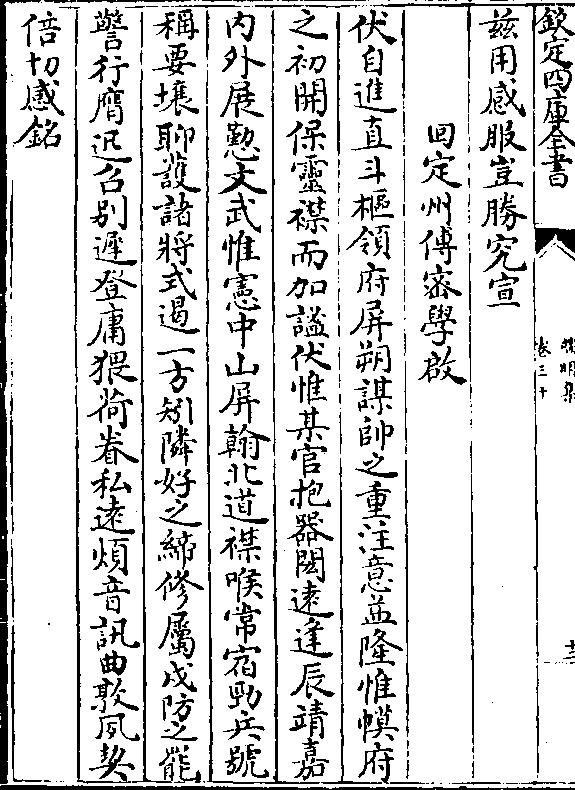 欽定四庫全書
卷三十
兹用感服豈勝究宣
回定州傅密學啟
伏自進直斗樞領府屏朔謀帥之重注意益隆惟幙府
之初開保靈襟而加謐伏惟某官抱器閎逺逢辰靖嘉
内外展懃文武惟憲中山屏翰北道襟喉常宿勁兵號
稱要壤聊護諸將式遏一方矧隣好之締修屬戍防之罷
警行膺迅召别遲登庸猥荷眷私逺煩音訊曲敦夙契
倍切感銘